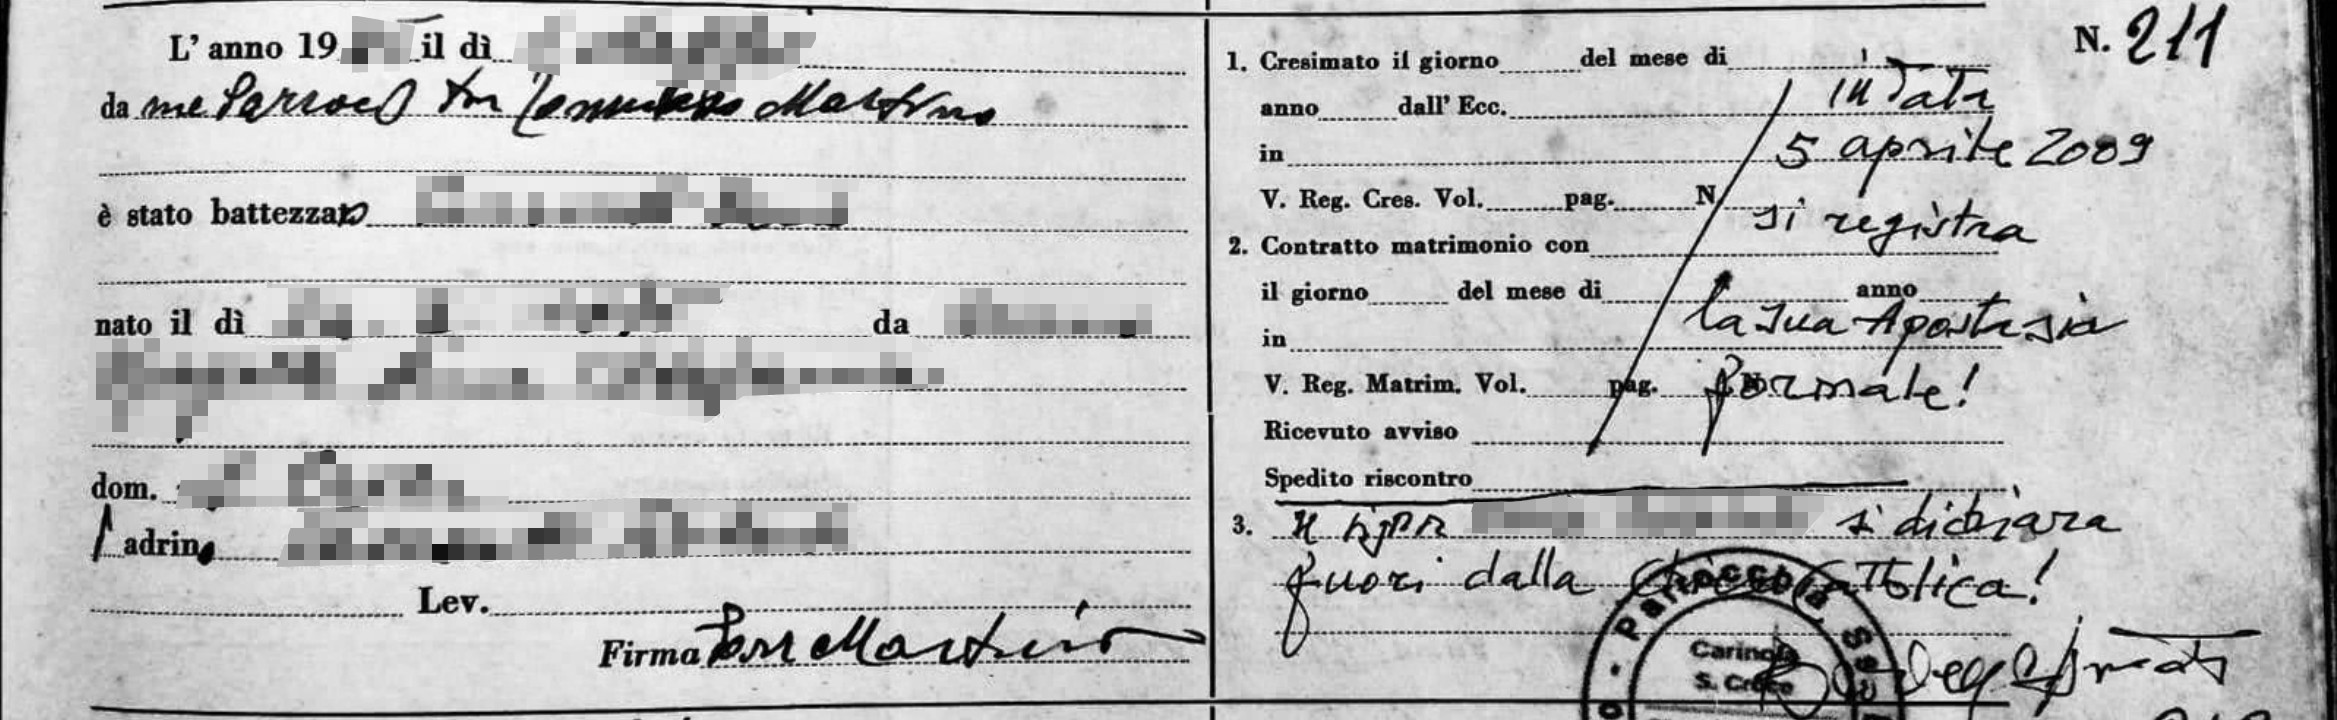 L' anno 19 il dì
da me Parroco Martino
è stato battezzato
nato il dì da
dom.
Padrino
Lev.
Firma Martino
N. 211
1. Cresimato il giorno del mese di
anno dall' Ecc.
in
V. Reg. Cres. Vol. pag. N
2. Contratto matrimonio con
il giorno del mese di anno
in
V. Reg. Matrim. Vol. pag. N.
Ricevuto avviso
Spedito riscontro
In data
5 aprile 2009
si registra
la sua Apostasia
formale!
3. Il sign si dichiara
fuori dalla Chiesa Cattolica!
Parrocchia
Carinola
S. Croce